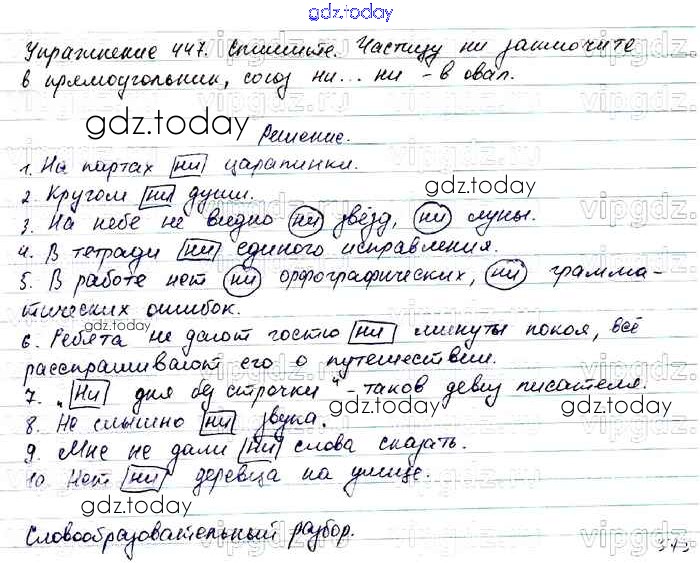 gdz.today
Упражнение 447. Спишите. Частицу ни заключите
в прямоугольник, союз ни... ни - в овал.
gdz.today
Решение.
1. На партах ни царапинки.
gdz.today
2. Кругом ни души.
3. На небе не видно ни звёзд, ни луны.
4. В тетради ни единого исправления.
5. В работе нет ни орфографических, ни грамма-
тических ошибок.
gdz.today
6. Ребята не дают гостю ни минуты покоя, всё
расспрашивают его о путешествии.
7. „Ни дня без строчки" - таков девиз писателя.
gdz.today
gdz.today
8. Не слышно ни звука.
9. Мне не дали ни слова сказать.
10. Нет ни деревца на улице.
gdz.today
Словообразовательный разбор.
373
vipgdz.ru